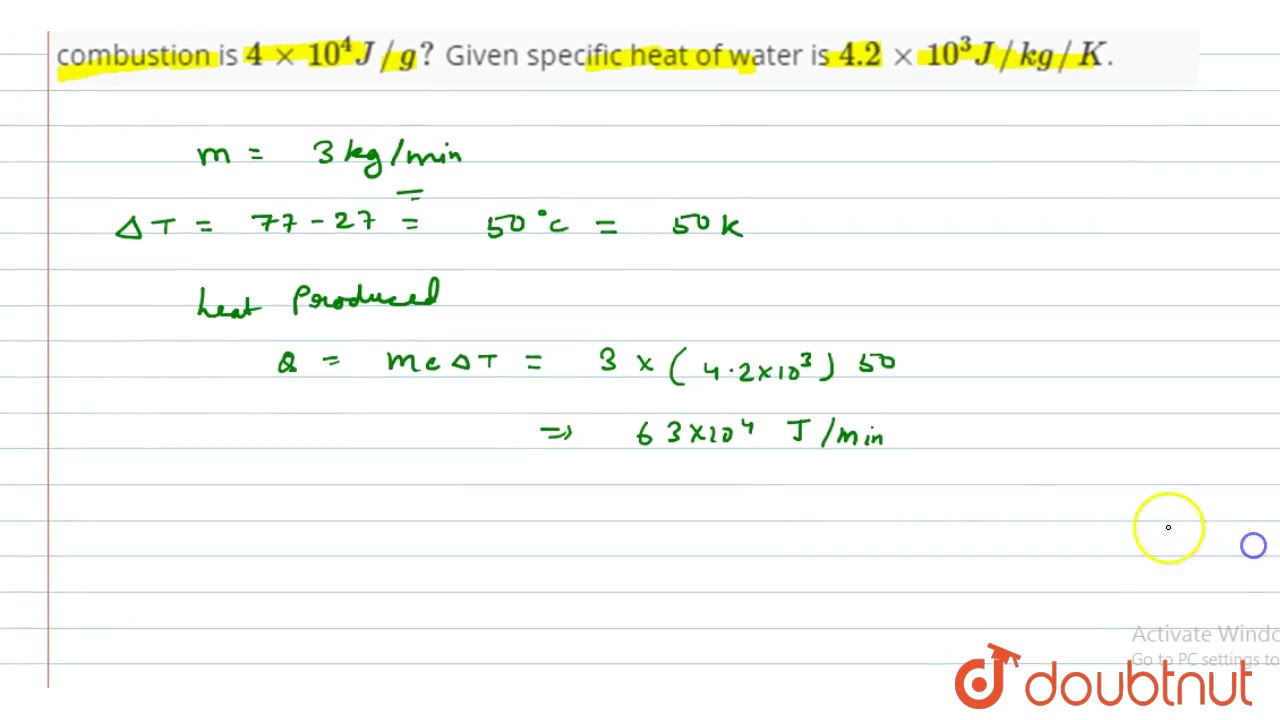 combustion is 4 × 10⁴ J/g? Given specific heat of water is 4.2 × 10³ J/kg/K.
m = 3 kg/min
ΔT = 77 - 27 = 50°C = 50K
heat Produced
Q = mcΔT = 3 × (4.2×10³) 50
⇒ 63×10⁴ J/min
Activate Windo
Go to PC settings to
doubtnut